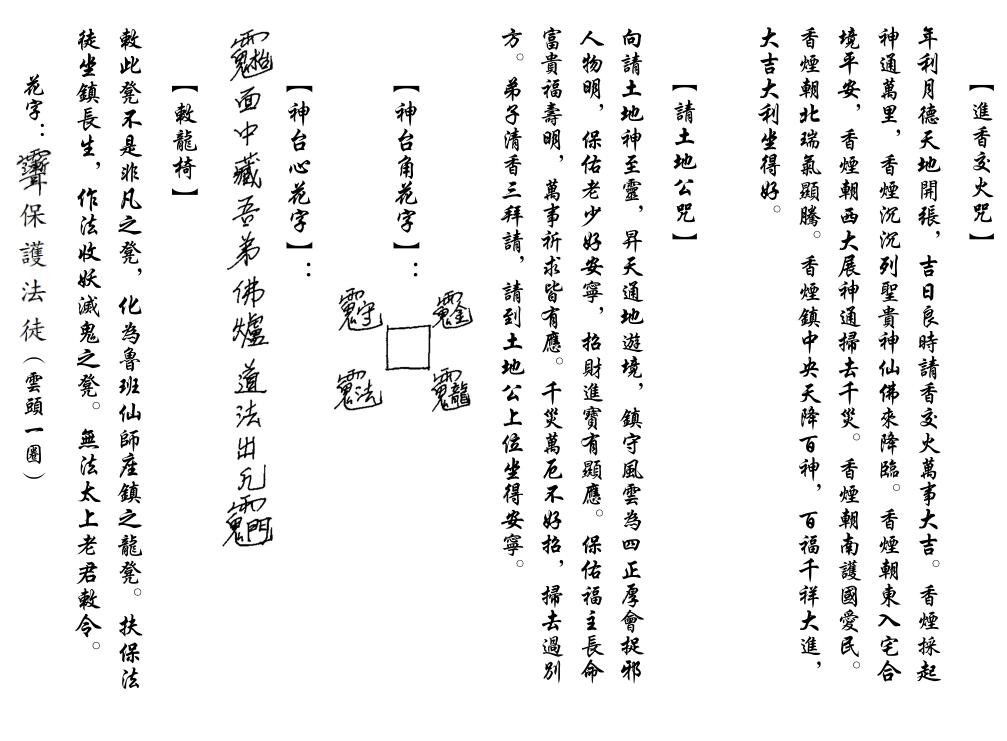 【進香交火咒】
年利月德天地開張，吉日良時請香交火萬事大吉。香煙採起
神通萬里，香煙沉沉列聖貴神仙佛來降臨。香煙朝東入宅合
境平安，香煙朝西大展神通掃去千災。香煙朝南護國愛民。
香煙朝北瑞氣顯騰。香煙鎮中央天降百神，百福千祥大進，
大吉大利坐得好。
【請土地公咒】
向請土地神至靈，昇天通地遊境，鎮守風雲為四正厚會捉邪
人物明，保佑老少好安寧，招財進寶有顯應。保佑福主長命
富貴福壽明，萬事祈求皆有應。千災萬厄不好招，掃去過別
方。弟子清香三拜請，請到土地公上位坐得安寧。
【神台角花字】：
【神台心花字】：
面中藏吾弟佛爐道法出
【敕龍椅】
敕此凳不是非凡之凳，化為魯班仙師座鎮之龍凳。扶保法
徒坐鎮長生，作法收妖滅鬼之凳。無法太上老君敕令。
花字：保護法徒（雲頭一圈）